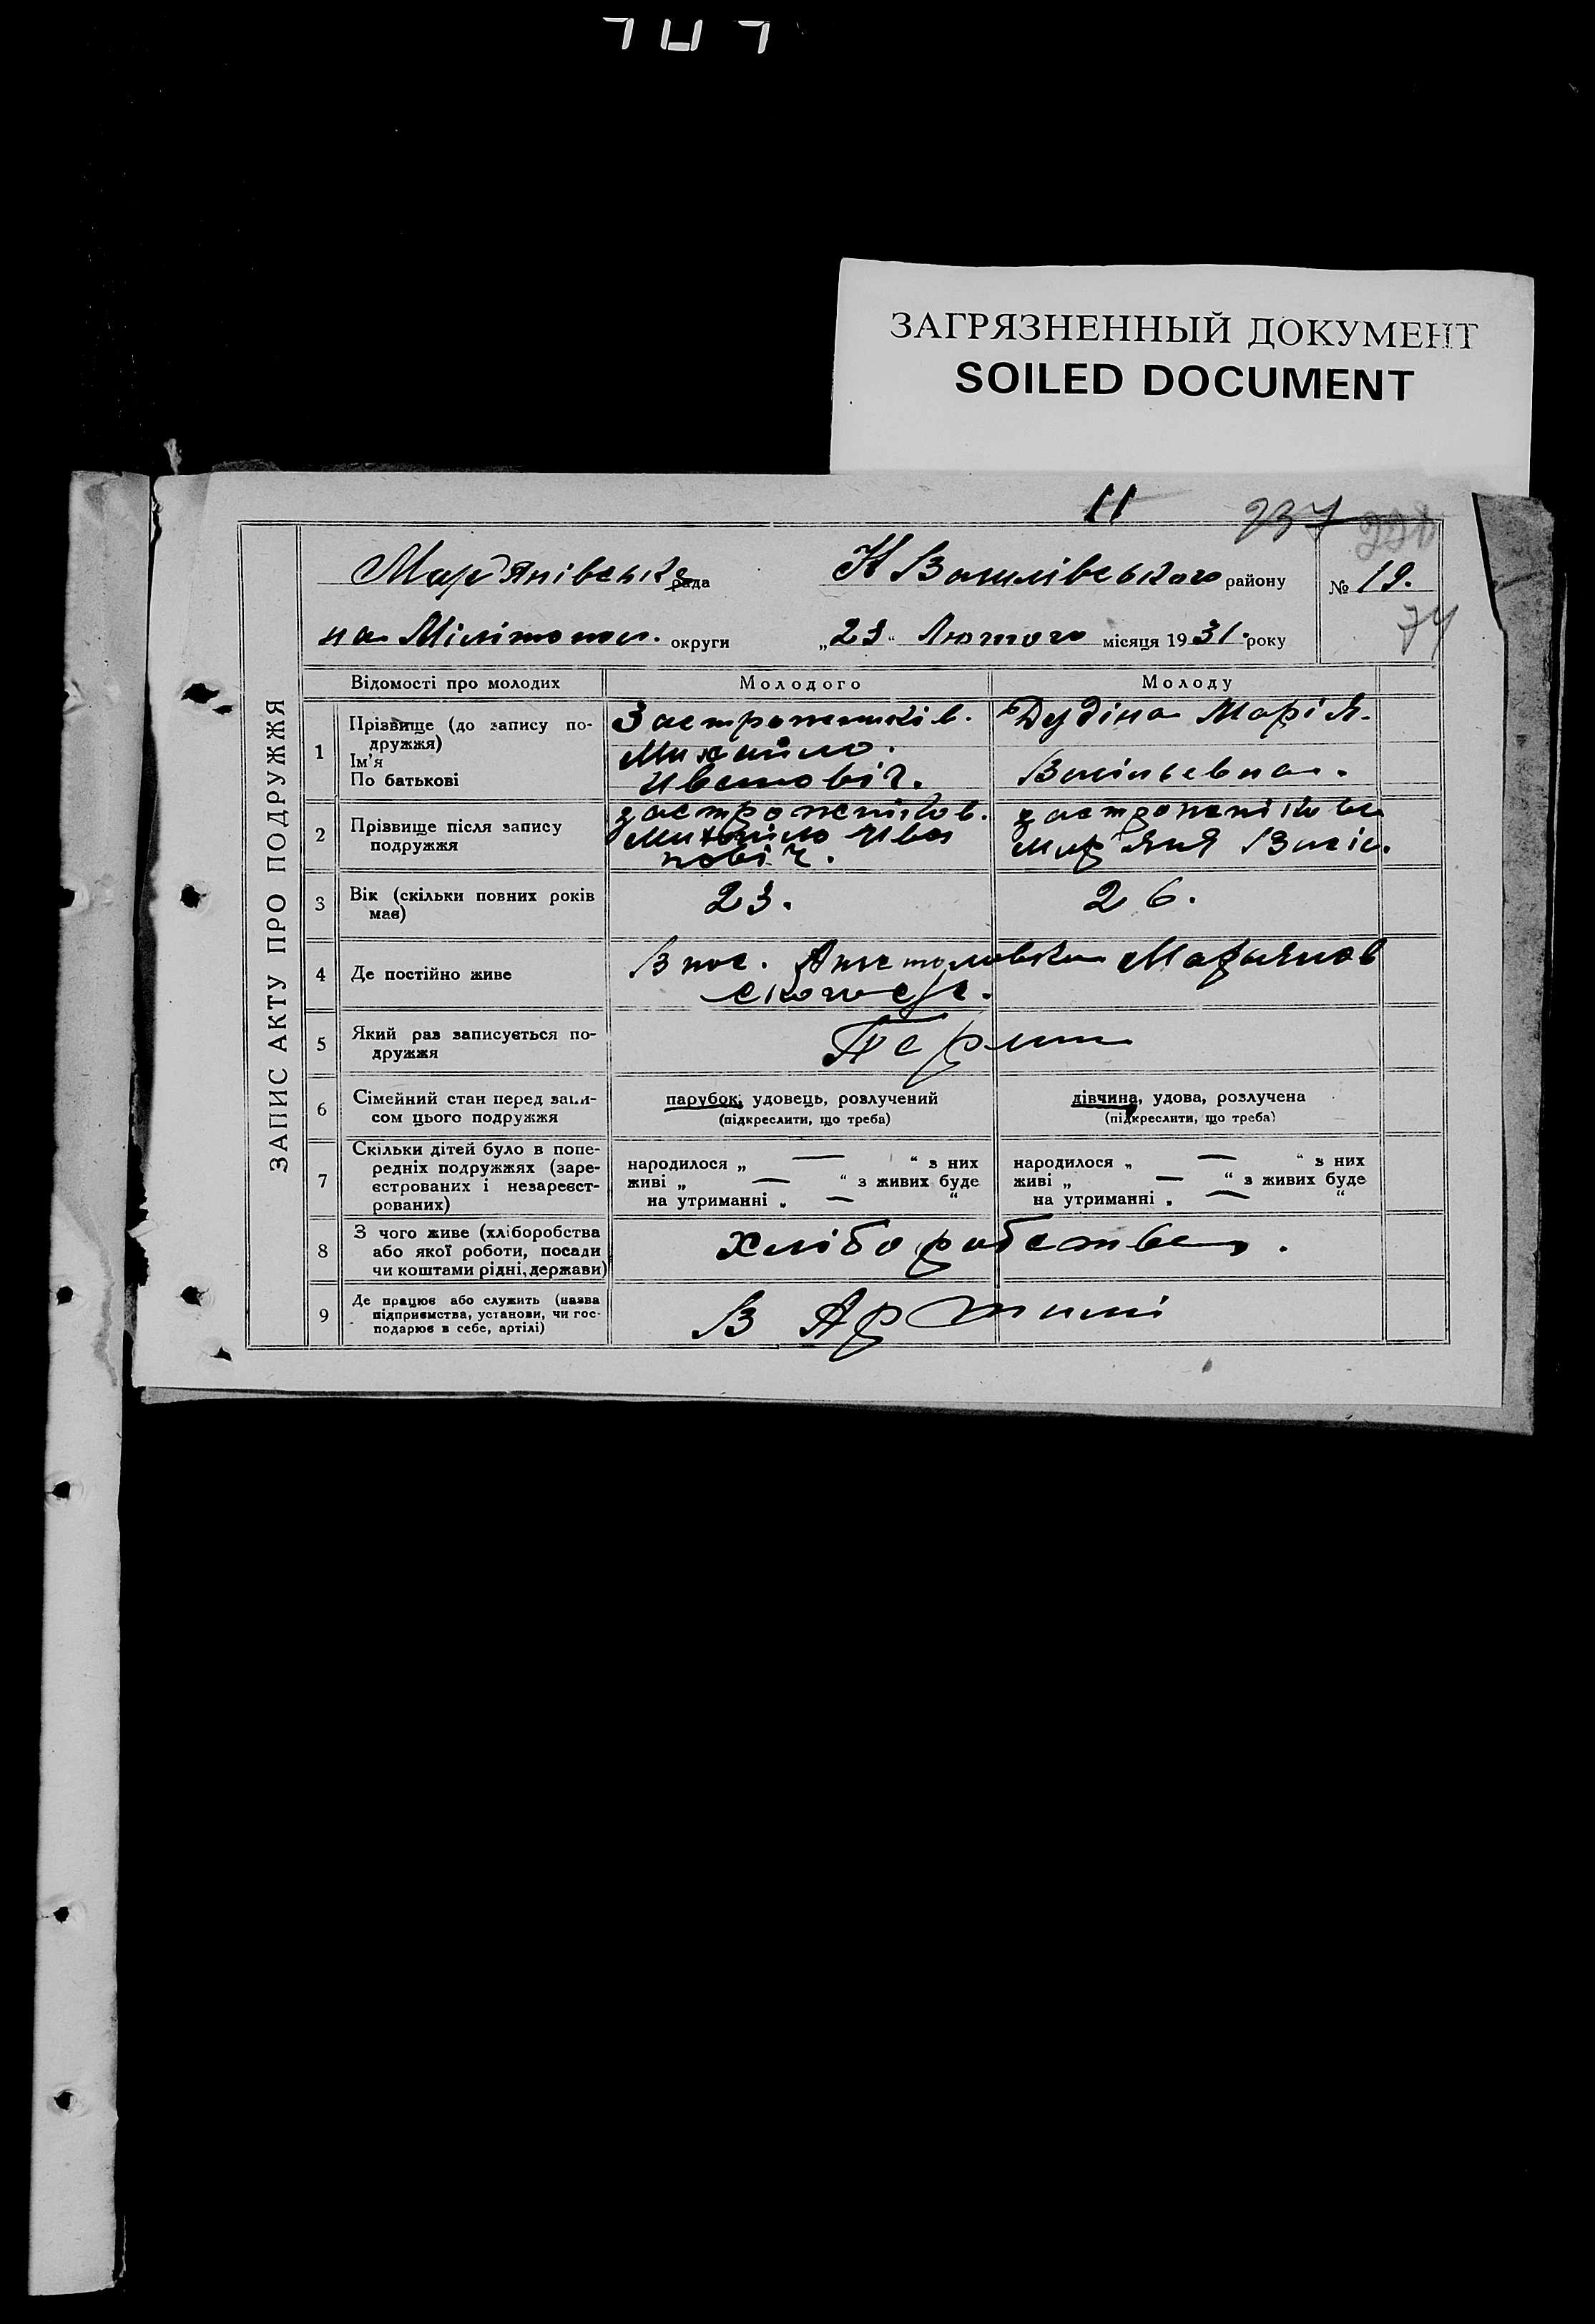 ЗАГРЯЗНЕННЫЙ ДОКУМЕНТ
SOILED DOCUMENT
11 237
Мар'янівська рада Н Василівського району № 19.
на Мілітопол. округи „23“ Лютого місяця 1931. року
74
ЗАПИС АКТУ ПРО ПОДРУЖЖЯ
Відомості про молодих Молодого Молоду
1 Прізвище (до запису по-
дружжя)
Ім'я
По батькові
Михайло.
Ивановіч.
Дудіна Марія.
Васільевна.
2 Прізвище після запису
подружжя
Михайло Ива
новіч.
Мар'яня Васіл.
3 Вік (скільки повних років
має)
23. 26.
4 Де постійно живе
В пос.
5 Який раз записується по-
дружжя
Перши
6 Сімейний стан перед запи-
сом цього подружжя
парубок, удовець, розлучений
(підкреслити, що треба)
дівчина, удова, розлучена
(підкреслити, що треба)
7 Скільки дітей було в попе-
редніх подружжях (заре-
єстрованих і незареєст-
рованих)
народилося „ — “ з них
живі „ — “ з живих буде
на утриманні „ — “
народилося „ — “ з них
живі „ — “ з живих буде
на утриманні „ — “
8 З чого живе (хліборобства
або якої роботи, посади
чи коштами рідні, держави)
Хліборобства.
9 Де працює або служить (назва
підприємства, установи, чи гос-
подарює в себе, артілі)
В Артилі